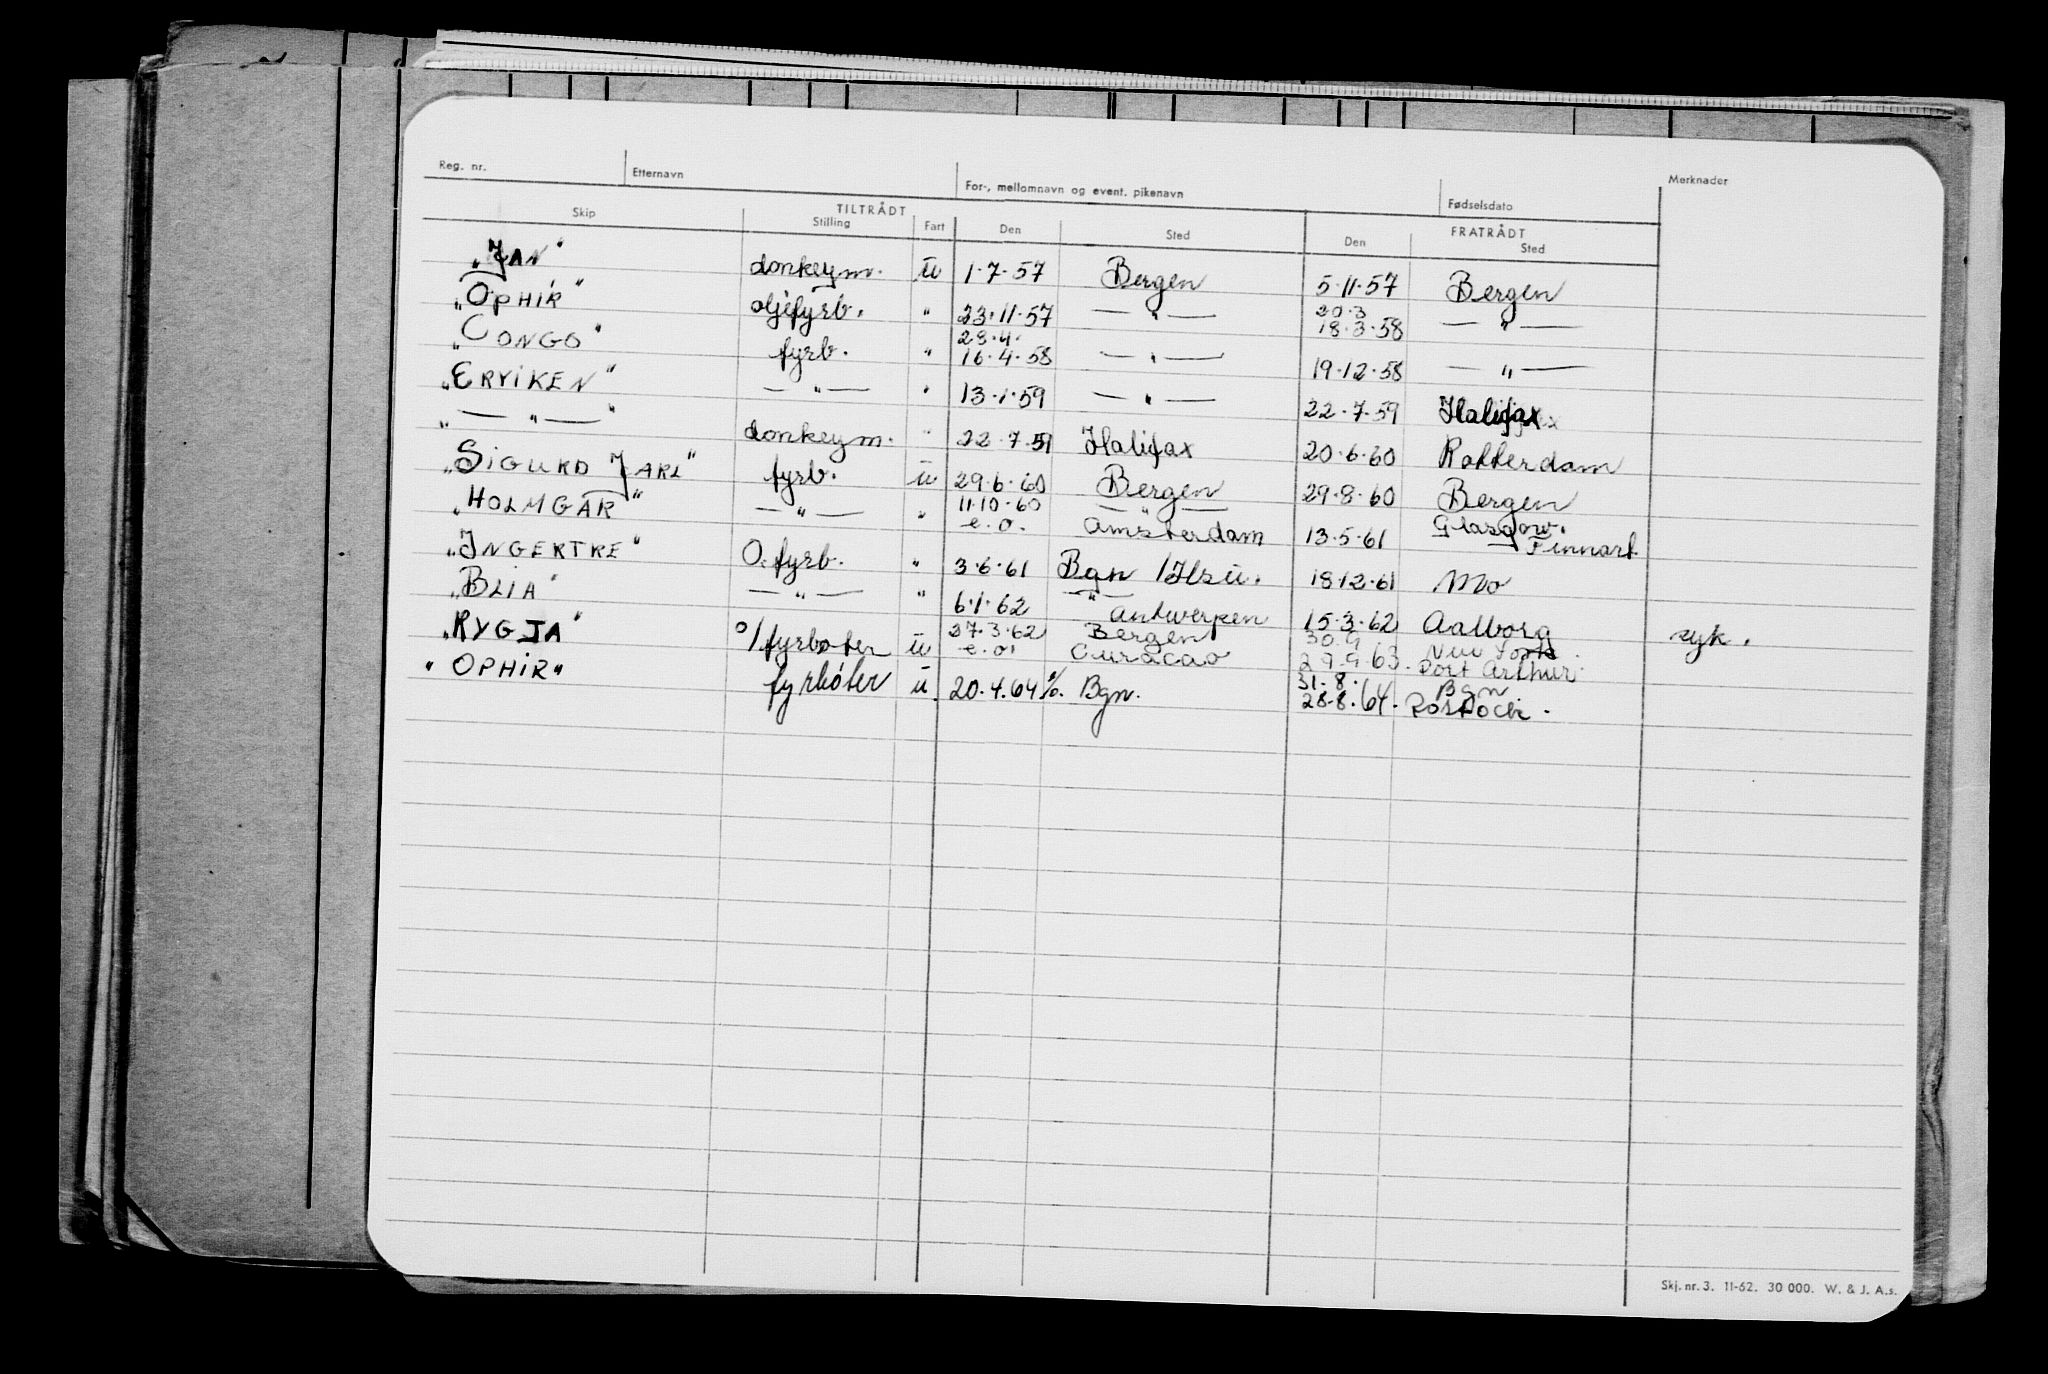 Reg. nr. Etternavn For-, mellomnavn og event. pikenavn Fødselsdato Merknader
TILTRÅDT FRATRÅDT
Skip Stilling Fart Den Sted Den Sted
"JAN" donkeym. ū 1.7.57 Bergen 5.11.57 Bergen
"OPHIR" oljefyrb. " 23.11.57 — " — 20.3 18.3.58 — " —
"CONGO" fyrb. " 16.4.58 — " — 19.12.58 — " —
"ERVIKEN" — " — " 13.1.59 — " — 22.7.59 Halifax
" — " — " donkeym. " 22.7.59 Halifax 20.6.60 Rotterdam
"SIGURD JARL" fyrb. ū 29.6.60 Bergen 29.8.60 Bergen
"HOLMGAR" — " — " 11.10.60 — " — Glasgow.
e.o. Amsterdam 13.5.61 Finnart
"INGERTRE" O. fyrb. " 3.6.61 Bgn / 18.12.61 Mo
"BLIA" — " — " 6.1.62 — " — Antwerpen 15.3.62 Aalborg
"RYGJA" o/fyrbøter ū 27.3.62 Bergen 30.9 New York syk.
e.o. Curacao 29.9.63. Port Arthur.
"OPHIR" fyrbøter ū 20.4.64 Bgn. 31.8. Bgn
28.8.64. Rostock.
Skj. nr. 3. 11-62. 30 000. W. & J. A.s.